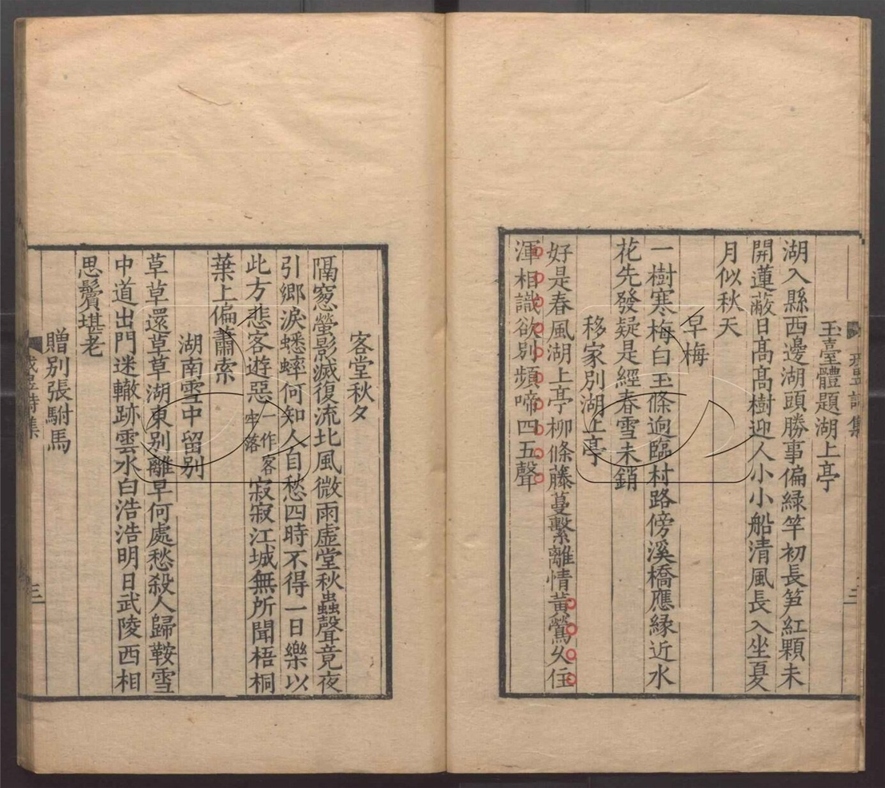 玉臺體題湖上亭
湖入縣西邊湖頭勝事偏緑竿初長笋紅顆未
開蓮蔽日髙髙樹迎人小小船清風長入坐夏
月似秋天
早梅
一樹寒梅白玉條逈臨村路傍溪橋應縁近水
花先發疑是經春雪未銷
移家別湖上亭
好是春風湖上亭柳條藤蔓繫離情黃鶯久住
渾相識欲別頻啼四五聲
客堂秋夕
隔窻螢影滅復流北風微雨虛堂秋蟲聲竟夜
引鄉淚蟋蟀何知人自愁四時不得一日樂以
此方悲客遊惡一作客牢落寂寂江城無所聞梧桐
葉上偏蕭索
湖南雪中留別
草草還草草湖東別離早何處愁殺人歸鞍雪
中道出門迷轍跡雲水白浩浩明日武陵西相
思鬢堪老
贈別張駙馬
戎昱詩集
三